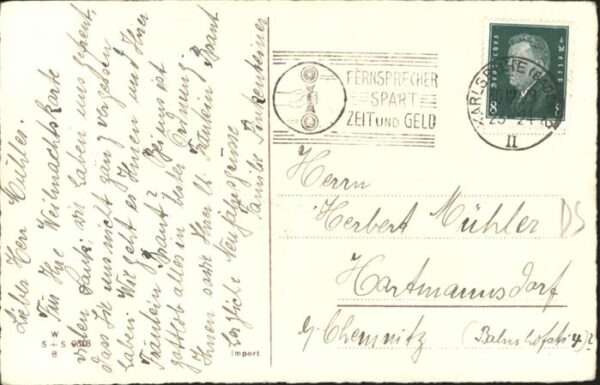 Liebr Herr Mühler.
Für Ihre Weihnachtskarte
vielen Dank; wir haben uns gefreut,
dass Sie uns nicht ganz vergessen
haben. Wie geht es Ihnen und Ihrer
Fräulein Braut? Bei uns ist
gottlob alles in bester Ordnung.
Ihnen sowie Ihrer lb. Fräulein Braut
herzliche Neujahrsgrüsse
Familie
W
S+S 9618
B
Import
FERNSPRECHER
SPART
ZEIT UND GELD
KARLSRUHE (BADEN)
II
DEUTSCHES REICH
8 8
Herrn
Herbert Mühler
Hartmannsdorf
b/Chemnitz (Bahnhofstr 4)
DS